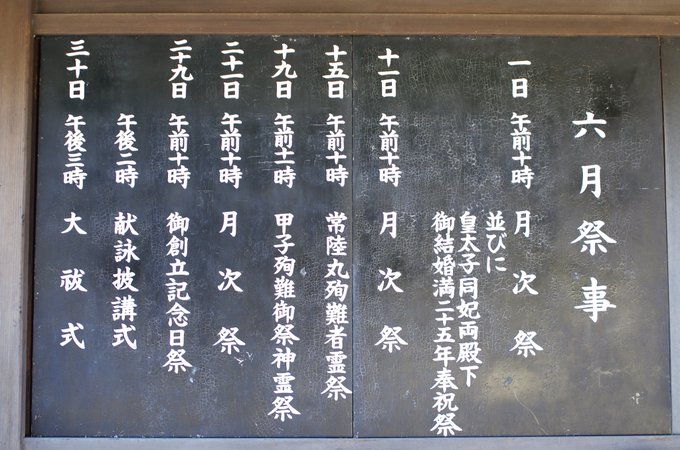 六月祭事
一日 午前十時 月次祭
並びに
皇太子同妃両殿下
御結婚満二十五年奉祝祭
十一日 午前十時 月次祭
十五日 午前十時 常陸丸殉難者霊祭
十九日 午前十一時 甲子殉難御祭神霊祭
二十一日 午前十時 月次祭
二十九日 午前十時 御創立記念日祭
午後二時 献詠披講式
三十日 午後三時 大祓式